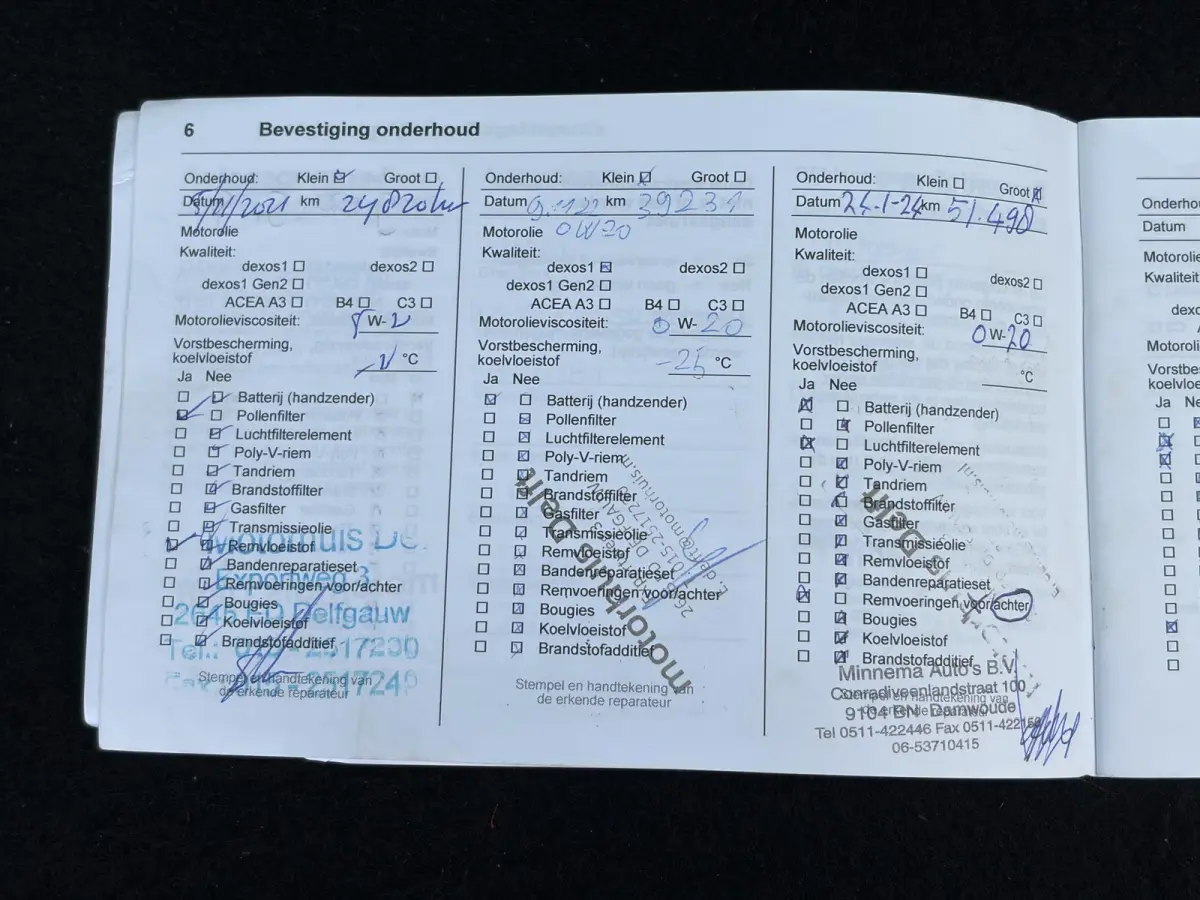 6 Bevestiging onderhoud
Onderhoud: Klein Groot
Datum km 24820 km
Motorolie
Kwaliteit:
dexos1 dexos2
dexos1 Gen2
ACEA A3 B4 C3
Motorolieviscositeit: W-
Vorstbescherming,
koelvloeistof °C
Ja Nee
Batterij (handzender)
Pollenfilter
Luchtfilterelement
Poly-V-riem
Tandriem
Brandstoffilter
Gasfilter
Transmissieolie
Remvloeistof
Bandenreparatieset
Remvoeringen voor/achter
Bougies
Koelvloeistof
Brandstofadditief
Motorhuis
Exportweg 3
Delfgauw
Tel.:
Stempel en handtekening van
de erkende reparateur
Onderhoud: Klein Groot
Datum km 39231
Motorolie 0W20
Kwaliteit:
dexos1 dexos2
dexos1 Gen2
ACEA A3 B4 C3
Motorolieviscositeit: 0 W- 20
Vorstbescherming,
koelvloeistof -25 °C
Ja Nee
Batterij (handzender)
Pollenfilter
Luchtfilterelement
Poly-V-riem
Tandriem
Brandstoffilter
Gasfilter
Transmissieolie
Remvloeistof
Bandenreparatieset
Remvoeringen voor/achter
Bougies
Koelvloeistof
Brandstofadditief
motorhuis Delft
Stempel en handtekening van
de erkende reparateur
Onderhoud: Klein Groot
Datum km 51.498
Motorolie
Kwaliteit:
dexos1 dexos2
dexos1 Gen2
ACEA A3 B4 C3
Motorolieviscositeit: 0 W- 20
Vorstbescherming,
koelvloeistof °C
Ja Nee
Batterij (handzender)
Pollenfilter
Luchtfilterelement
Poly-V-riem
Tandriem
Brandstoffilter
Gasfilter
Transmissieolie
Remvloeistof
Bandenreparatieset
Remvoeringen voor/achter
Bougies
Koelvloeistof
Brandstofadditief
Minnema Auto's B.V.
Conradiveenlandstraat 100
9104 BN Damwoude
Tel 0511-422446 Fax
06-53710415
Stempel en handtekening van
de erkende reparateur
Datum
Ja